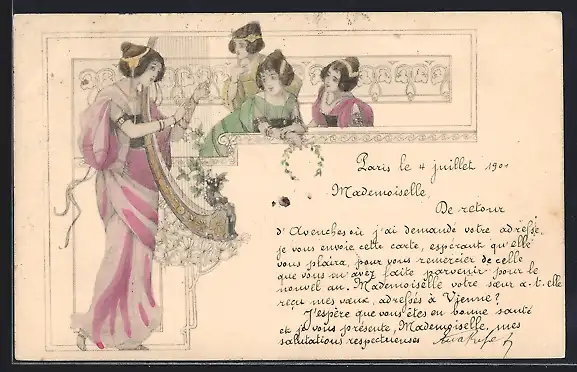 Paris le 4 juillet 1901
Mademoiselle,
De retour
d'Avenches où j'ai demandé votre adresse,
je vous envoie cette carte, espérant qu'elle
vous plaira, pour vous remercier de celle
que vous m'avez faite parvenir pour le
nouvel an. Mademoiselle votre sœur a-t-elle
reçu mes vœux, adressés à Vienne?
J'espère que vous êtes en bonne santé
et je vous présente, Mademoiselle, mes
salutations respectueuses